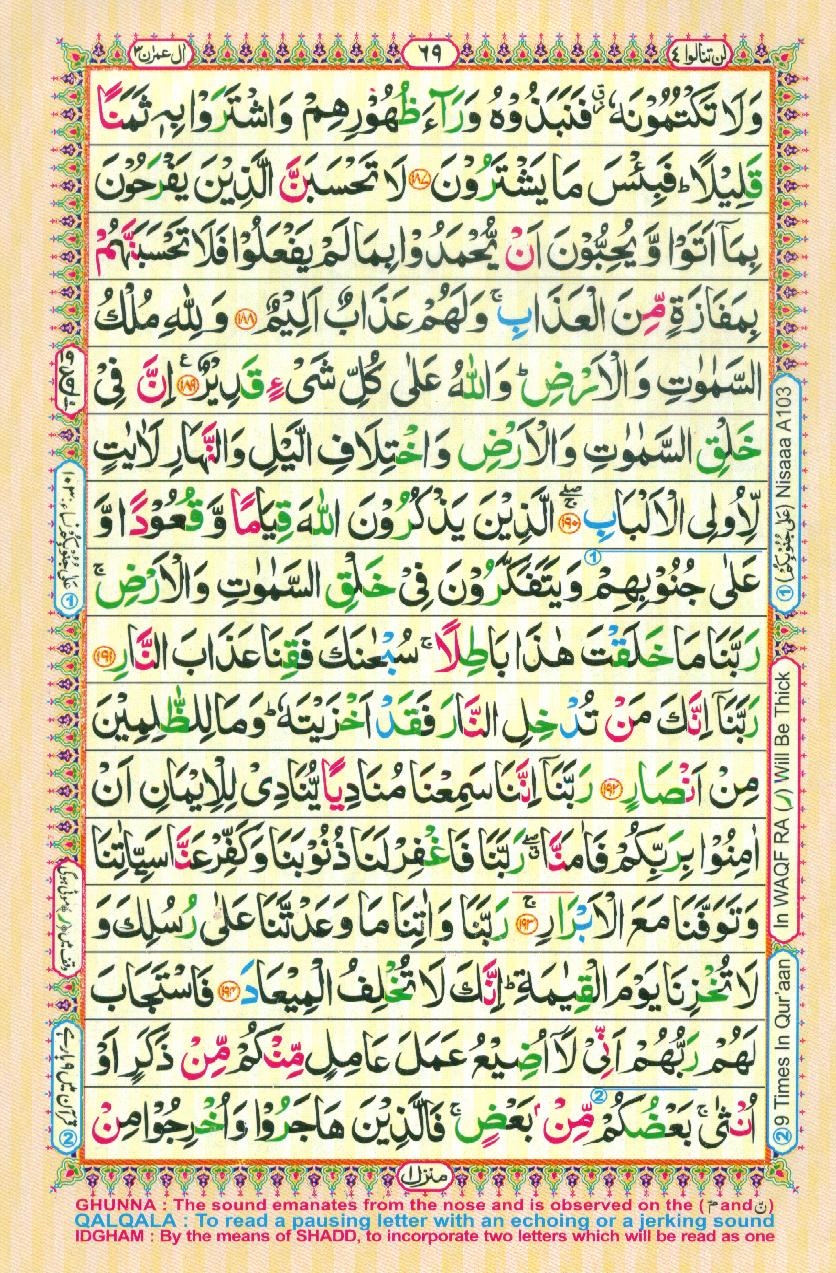 لن تنالوا ٤
٦٩
اٰل عمرٰن ٣
وَلَا تَكْتُمُوْنَهٗ٘ فَنَبَذُوْهُ وَرَآءَ ظُهُوْرِهِمْ وَاشْتَرَوْا بِهٖ ثَمَنًا
قَلِيْلًا ؕ فَبِئْسَ مَا يَشْتَرُوْنَ ۝١٨٧ لَا تَحْسَبَنَّ الَّذِيْنَ يَفْرَحُوْنَ
بِمَاۤ اَتَوْا وَّ يُحِبُّوْنَ اَنْ يُّحْمَدُوْا بِمَا لَمْ يَفْعَلُوْا فَلَا تَحْسَبَنَّهُمْ
بِمَفَازَةٍ مِّنَ الْعَذَابِ ۚ وَلَهُمْ عَذَابٌ اَلِيْمٌ ۝١٨٨ وَ لِلّٰهِ مُلْكُ
السَّمٰوٰتِ وَ الْاَرْضِ ؕ وَ اللّٰهُ عَلٰى كُلِّ شَىْءٍ قَدِيْرٌ ۝١٨٩ اِنَّ فِىْ
خَلْقِ السَّمٰوٰتِ وَ الْاَرْضِ وَ اخْتِلَافِ الَّيْلِ وَ النَّهَارِ لَاٰيٰتٍ
لِّاُولِى الْاَلْبَابِ ۝١٩٠ الَّذِيْنَ يَذْكُرُوْنَ اللّٰهَ قِيَامًا وَّ قُعُوْدًا وَّ
عَلٰى جُنُوْبِهِمْ وَ يَتَفَكَّرُوْنَ فِىْ خَلْقِ السَّمٰوٰتِ وَ الْاَرْضِ ۚ
رَبَّنَا مَا خَلَقْتَ هٰذَا بَاطِلًا ۚ سُبْحٰنَكَ فَقِنَا عَذَابَ النَّارِ ۝١٩١
رَبَّنَاۤ اِنَّكَ مَنْ تُدْخِلِ النَّارَ فَقَدْ اَخْزَيْتَهٗ ؕ وَمَا لِلظّٰلِمِيْنَ
مِنْ اَنْصَارٍ ۝١٩٢ رَبَّنَاۤ اِنَّنَا سَمِعْنَا مُنَادِيًا يُّنَادِىْ لِلْاِيْمَانِ اَنْ
اٰمِنُوْا بِرَبِّكُمْ فَاٰمَنَّا ۖ رَبَّنَا فَاغْفِرْ لَنَا ذُنُوْبَنَا وَ كَفِّرْ عَنَّا سَيِّاٰتِنَا
وَ تَوَفَّنَا مَعَ الْاَبْرَارِ ۝١٩٣ رَبَّنَا وَ اٰتِنَا مَا وَعَدْتَّنَا عَلٰى رُسُلِكَ وَ
لَا تُخْزِنَا يَوْمَ الْقِيٰمَةِ ؕ اِنَّكَ لَا تُخْلِفُ الْمِيْعَادَ ۝١٩٤ فَاسْتَجَابَ
لَهُمْ رَبُّهُمْ اَنِّىْ لَاۤ اُضِيْعُ عَمَلَ عَامِلٍ مِّنْكُمْ مِّنْ ذَكَرٍ اَوْ
اُنْثٰى ۚ بَعْضُكُمْ مِّنْۢ بَعْضٍ ۚ فَالَّذِيْنَ هَاجَرُوْا وَ اُخْرِجُوْا مِنْ
① (عَلٰى جُنُوْبِكُمْ) Nisaaa A103
In WAQF RA (ر) Will Be Thick
② 9 Times In Qur'aan
① عَلٰى جُنُوْبِكُمْ نساء: ١٠٣
وقف میں (ر) موٹی ہوگی
② قرآن میں ٩ بار ہے
منزل ١
GHUNNA : The sound emanates from the nose and is observed on the ( مّ and نّ )
QALQALA : To read a pausing letter with an echoing or a jerking sound
IDGHAM : By the means of SHADD, to incorporate two letters which will be read as one